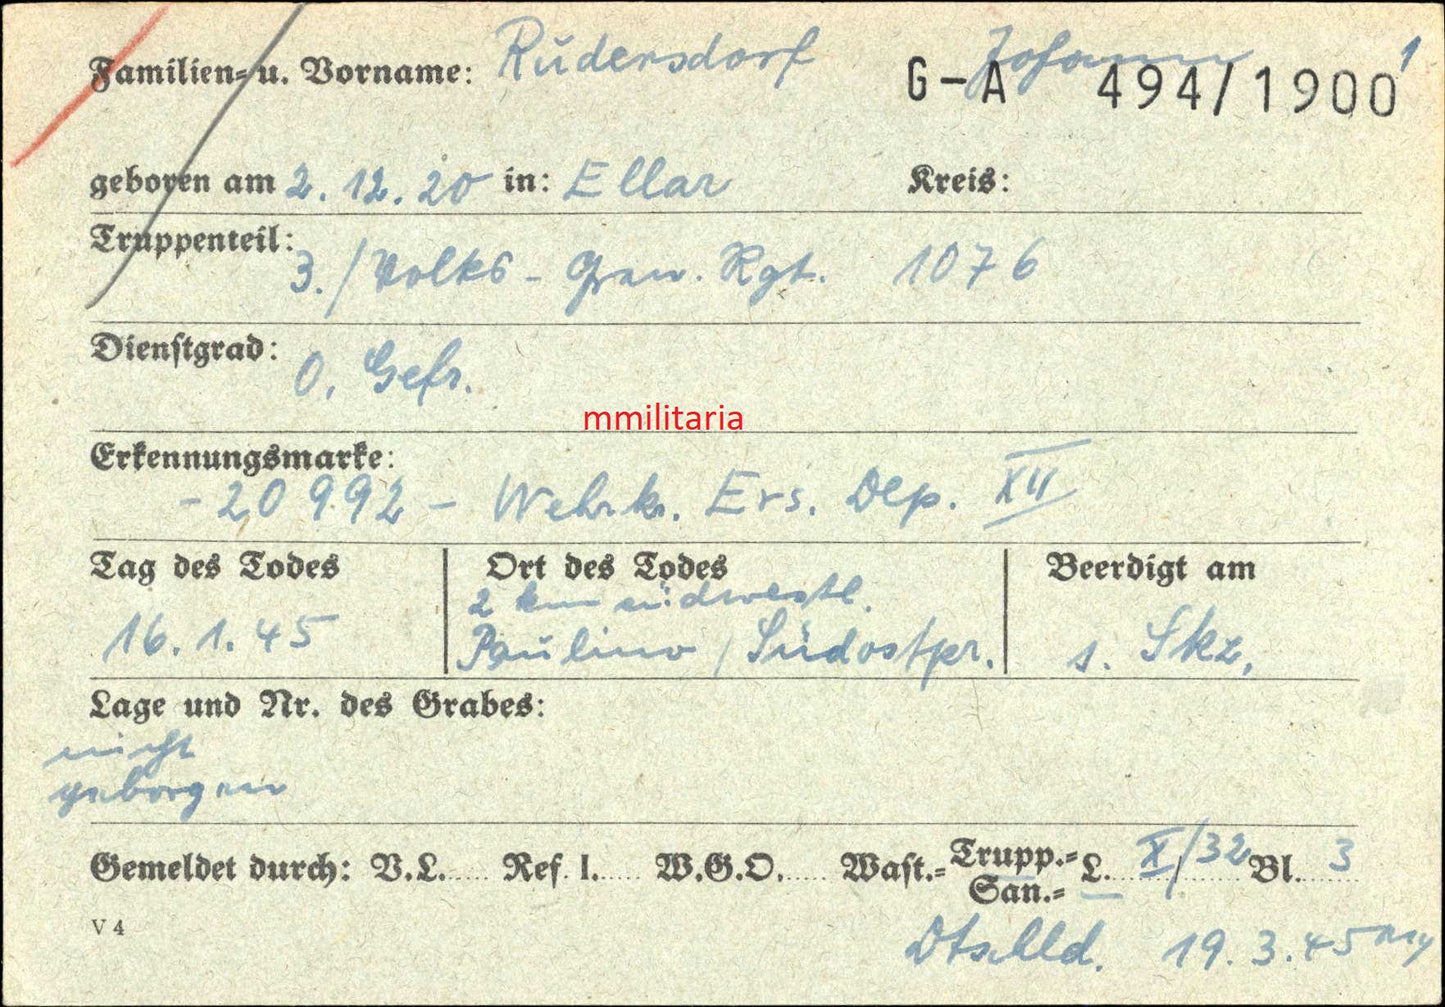 Familien- u. Vorname: Rüdersdorf Johann 1
G-A 494/1900
geboren am 2.12.20 in: Ellar Kreis:
Truppenteil:
3./Volks-Gren. Rgt. 1076
Dienstgrad:
O. Gefr.
mmilitaria
Erkennungsmarke:
-20992- Wehrk. Ers. Dep. XII
Tag des Todes Ort des Todes Beerdigt am
2 km südwestl.
16.1.45 Paulino / Südostpr. s. Skz.
Lage und Nr. des Grabes:
nicht
geborgen
Gemeldet durch: V.L..... Ref. I..... W.G.O...... Wast.- Trupp.- L. X/32 Bl. 3
San.-
V 4
Dtschld. 19.3.45